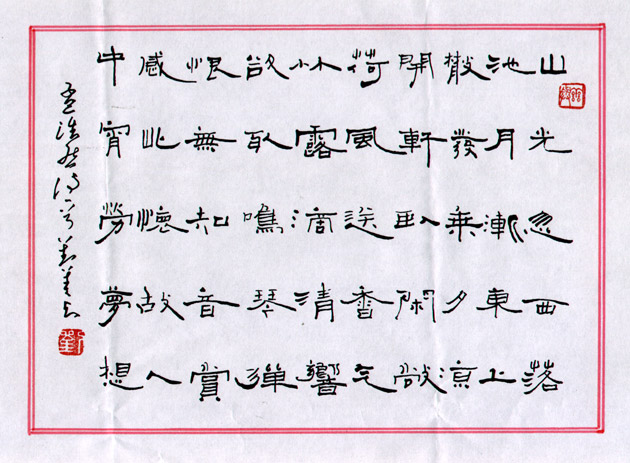 山光忽西落
池月漸東上
散發乘夕涼
開軒臥閑敞
荷風送香气
竹露滴清響
欲取鳴琴彈
恨無知音賞
感此懷故人
中宵勞夢想
孟浩然诗